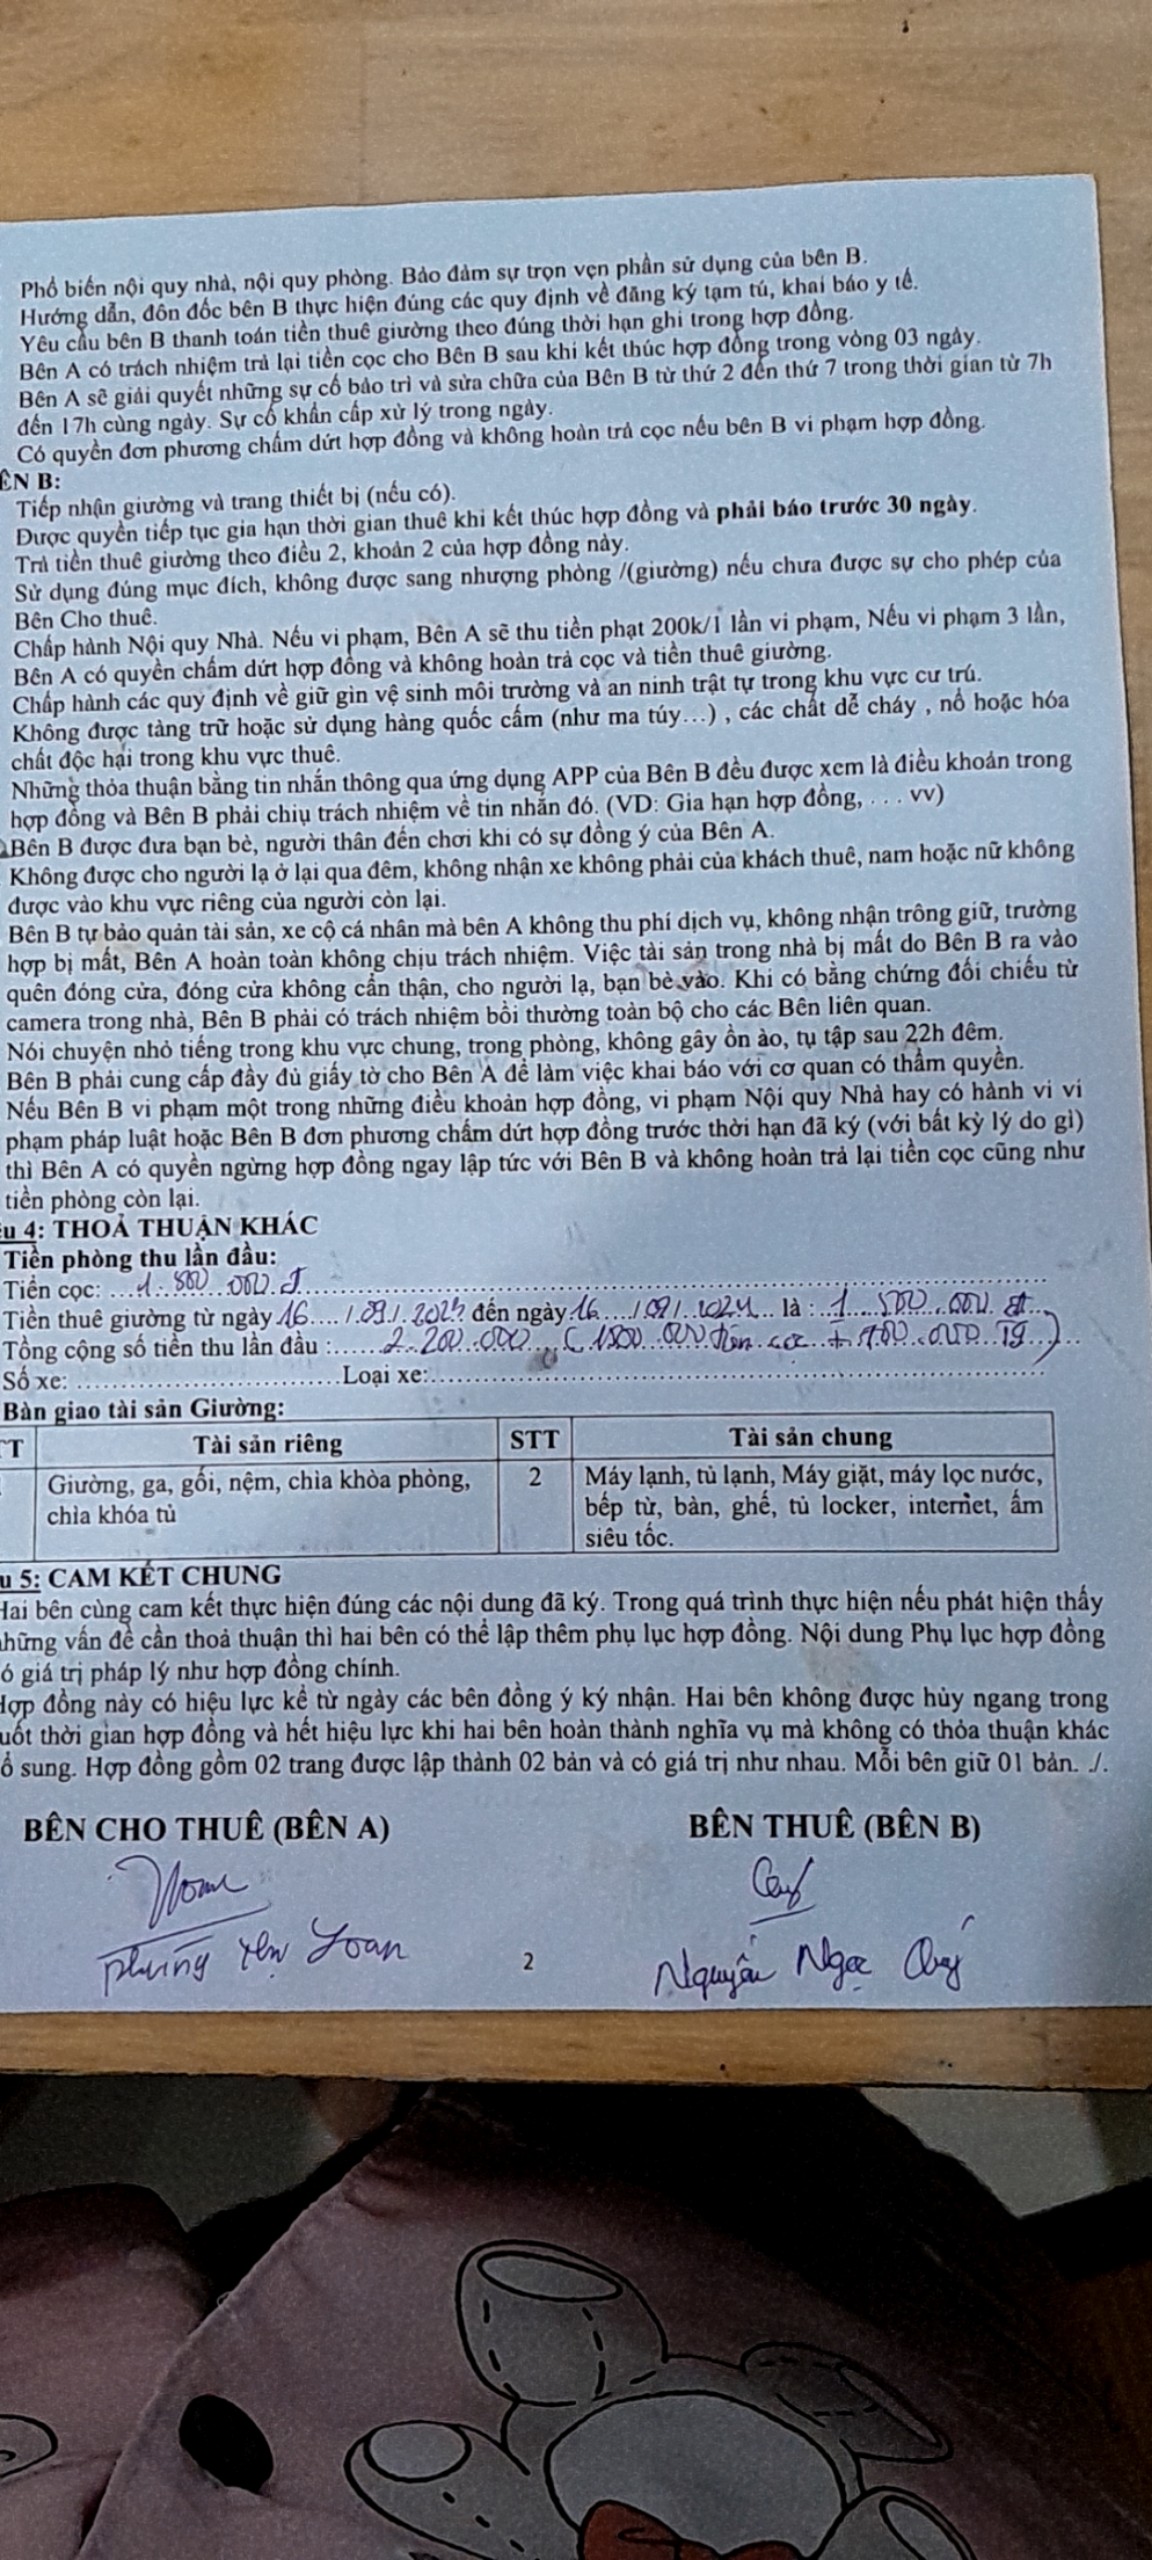 Phổ biến nội quy nhà, nội quy phòng. Bảo đảm sự trọn vẹn phần sử dụng của bên B.
Hướng dẫn, đôn đốc bên B thực hiện đúng các quy định về đăng ký tạm tú, khai báo y tế.
Yêu cầu bên B thanh toán tiền thuê giường theo đúng thời hạn ghi trong hợp đồng.
Bên A có trách nhiệm trả lại tiền cọc cho Bên B sau khi kết thúc hợp đồng trong vòng 03 ngày.
Bên A sẽ giải quyết những sự cố bảo trì và sửa chữa của Bên B từ thứ 2 đến thứ 7 trong thời gian từ 7h
đến 17h cùng ngày. Sự cố khẩn cấp xử lý trong ngày.
Có quyền đơn phương chấm dứt hợp đồng và không hoàn trả cọc nếu bên B vi phạm hợp đồng.
ÊN B:
Tiếp nhận giường và trang thiết bị (nếu có).
Được quyền tiếp tục gia hạn thời gian thuê khi kết thúc hợp đồng và phải báo trước 30 ngày.
Trả tiền thuê giường theo điều 2, khoản 2 của hợp đồng này.
Sử dụng đúng mục đích, không được sang nhượng phòng /(giường) nếu chưa được sự cho phép của
Bên Cho thuê.
Chấp hành Nội quy Nhà. Nếu vi phạm, Bên A sẽ thu tiền phạt 200k/1 lần vi phạm, Nếu vi phạm 3 lần,
Bên A có quyền chấm dứt hợp đồng và không hoàn trả cọc và tiền thuê giường.
Chấp hành các quy định về giữ gìn vệ sinh môi trường và an ninh trật tự trong khu vực cư trú.
Không được tàng trữ hoặc sử dụng hàng quốc cấm (như ma túy...) , các chất dễ cháy , nổ hoặc hóa
chất độc hại trong khu vực thuê.
Những thỏa thuận bằng tin nhắn thông qua ứng dụng APP của Bên B đều được xem là điều khoản trong
hợp đồng và Bên B phải chịu trách nhiệm về tin nhắn đó. (VD: Gia hạn hợp đồng, . . . vv)
Bên B được đưa bạn bè, người thân đến chơi khi có sự đồng ý của Bên A.
Không được cho người lạ ở lại qua đêm, không nhận xe không phải của khách thuê, nam hoặc nữ không
được vào khu vực riêng của người còn lại.
Bên B tự bảo quản tài sản, xe cộ cá nhân mà bên A không thu phí dịch vụ, không nhận trông giữ, trường
hợp bị mất, Bên A hoàn toàn không chịu trách nhiệm. Việc tài sản trong nhà bị mất do Bên B ra vào
quên đóng cửa, đóng cửa không cẩn thận, cho người lạ, bạn bè vào. Khi có bằng chứng đối chiếu từ
camera trong nhà, Bên B phải có trách nhiệm bồi thường toàn bộ cho các Bên liên quan.
Nói chuyện nhỏ tiếng trong khu vực chung, trong phòng, không gây ồn ào, tụ tập sau 22h đêm.
Bên B phải cung cấp đầy đủ giấy tờ cho Bên A để làm việc khai báo với cơ quan có thẩm quyền.
Nếu Bên B vi phạm một trong những điều khoản hợp đồng, vi phạm Nội quy Nhà hay có hành vi vi
phạm pháp luật hoặc Bên B đơn phương chấm dứt hợp đồng trước thời hạn đã ký (với bất kỳ lý do gì)
thì Bên A có quyền ngừng hợp đồng ngay lập tức với Bên B và không hoàn trả lại tiền cọc cũng như
tiền phòng còn lại.
u 4: THOẢ THUẬN KHÁC
Tiền phòng thu lần đầu:
Tiền cọc: ...1.500.000.đ
Tiền thuê giường từ ngày 16..../.09./.2023 đến ngày 16..../.09/.2024... là : 1....500...000. đ
Tổng cộng số tiền thu lần đầu :......2.200.000....(.1500.000 tiền cọc + 700.000 TG)
Số xe: .............................Loại xe:
Bàn giao tài sản Giường:
TT Tài sản riêng STT Tài sản chung
Giường, ga, gối, nệm, chìa khòa phòng, 2 Máy lạnh, tủ lạnh, Máy giặt, máy lọc nước,
chìa khóa tủ bếp từ, bàn, ghế, tủ locker, internet, ấm
siêu tốc.
u 5: CAM KẾT CHUNG
Hai bên cùng cam kết thực hiện đúng các nội dung đã ký. Trong quá trình thực hiện nếu phát hiện thấy
những vấn đề cần thoả thuận thì hai bên có thể lập thêm phụ lục hợp đồng. Nội dung Phụ lục hợp đồng
ó giá trị pháp lý như hợp đồng chính.
Hợp đồng này có hiệu lực kể từ ngày các bên đồng ý ký nhận. Hai bên không được hủy ngang trong
uốt thời gian hợp đồng và hết hiệu lực khi hai bên hoàn thành nghĩa vụ mà không có thỏa thuận khác
ổ sung. Hợp đồng gồm 02 trang được lập thành 02 bản và có giá trị như nhau. Mỗi bên giữ 01 bản. ./.
BÊN CHO THUÊ (BÊN A) BÊN THUÊ (BÊN B)
Phùng Yến Loan 2 Nguyễn Ngọc Quý